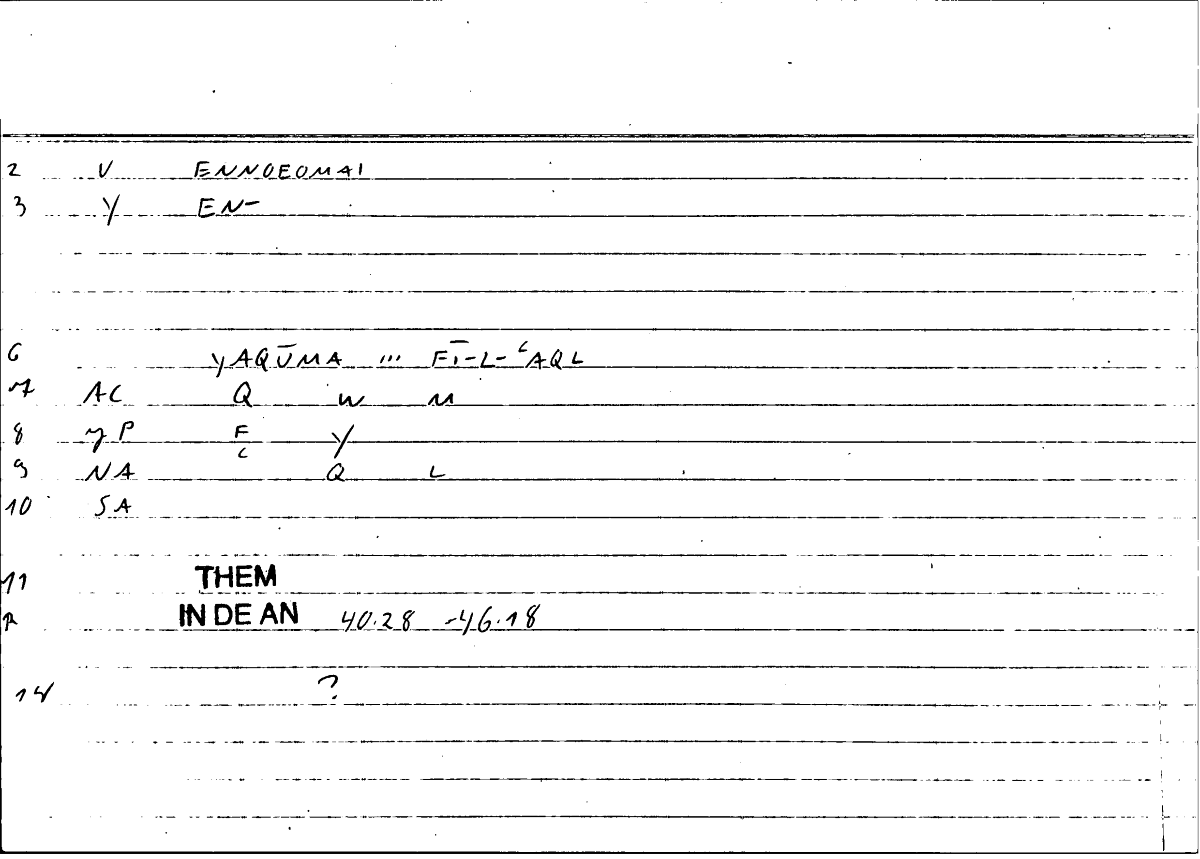 2 V ENNOEOMAI
3 Y EN-
6 YAQŪMA ... FĪ-L-ʿAQL
7 AC Q W M
8 yP F Y
9 NA ʿ Q L
10 SA
11 THEM
12 IN DE AN 40.28 -46.18
14 ?